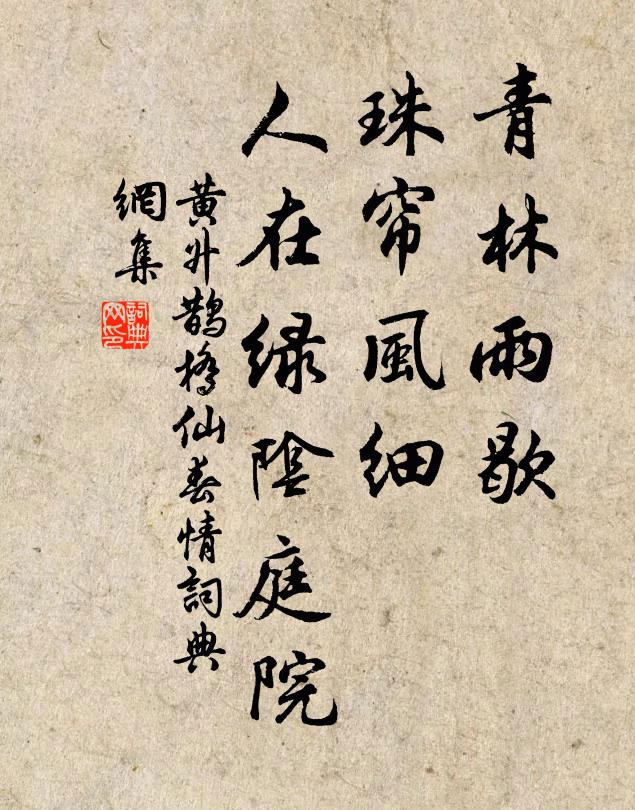 青林雨歇
珠帘風細
人在绿陰庭院
黄升鹊橋仙春情詞典
網集
詞典
网印